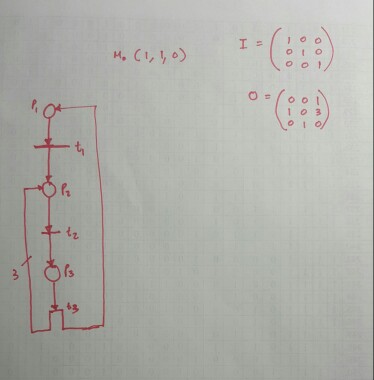 M₀ (1, 1, 0)
I = ( 1 0 0
0 1 0
0 0 1 )
O = ( 0 0 1
1 0 3
0 1 0 )
P₁
t₁
P₂
t₂
3
P₃
t₃